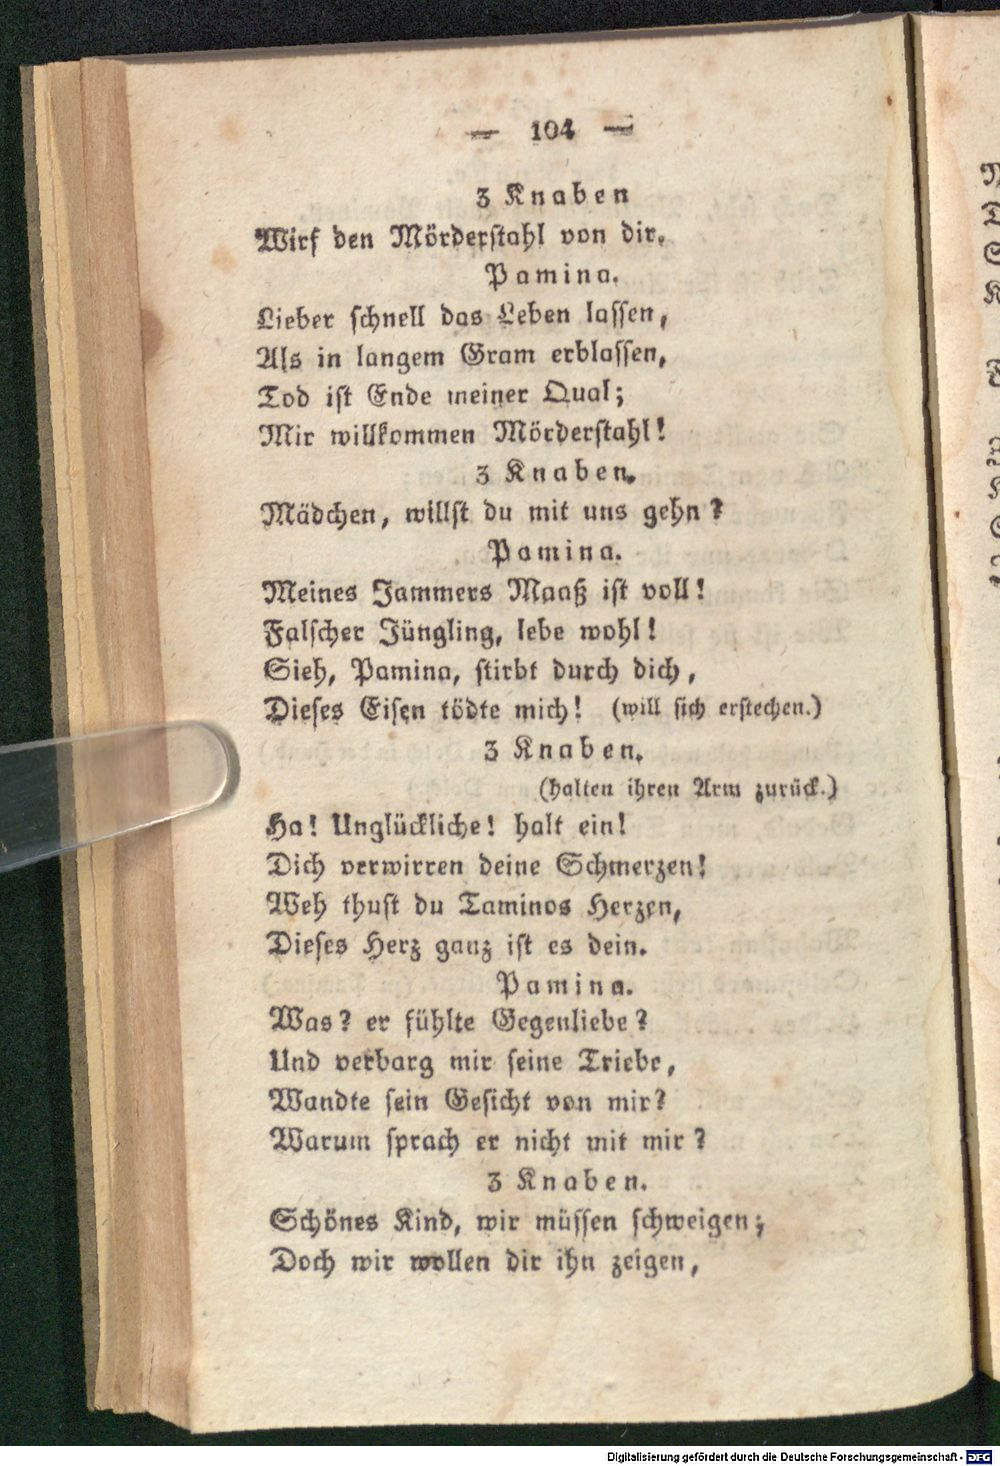 — 104 —
3 Knaben
Wirf den Mörderstahl von dir.
Pamina.
Lieber schnell das Leben lassen,
Als in langem Gram erblassen,
Tod ist Ende meiner Qual;
Mir willkommen Mörderstahl!
3 Knaben.
Mädchen, willst du mit uns gehn?
Pamina.
Meines Jammers Maaß ist voll!
Falscher Jüngling, lebe wohl!
Sieh, Pamina, stirbt durch dich,
Dieses Eisen tödte mich! (will sich erstechen.)
3 Knaben.
(halten ihren Arm zurück.)
Ha! Unglückliche! halt ein!
Dich verwirren deine Schmerzen!
Weh thust du Taminos Herzen,
Dieses Herz ganz ist es dein.
Pamina.
Was? er fühlte Gegenliebe?
Und verbarg mir seine Triebe,
Wandte sein Gesicht von mir?
Warum sprach er nicht mit mir?
3 Knaben.
Schönes Kind, wir müssen schweigen;
Doch wir wollen dir ihn zeigen,
Digitalisierung gefördert durch die Deutsche Forschungsgemeinschaft - DFG